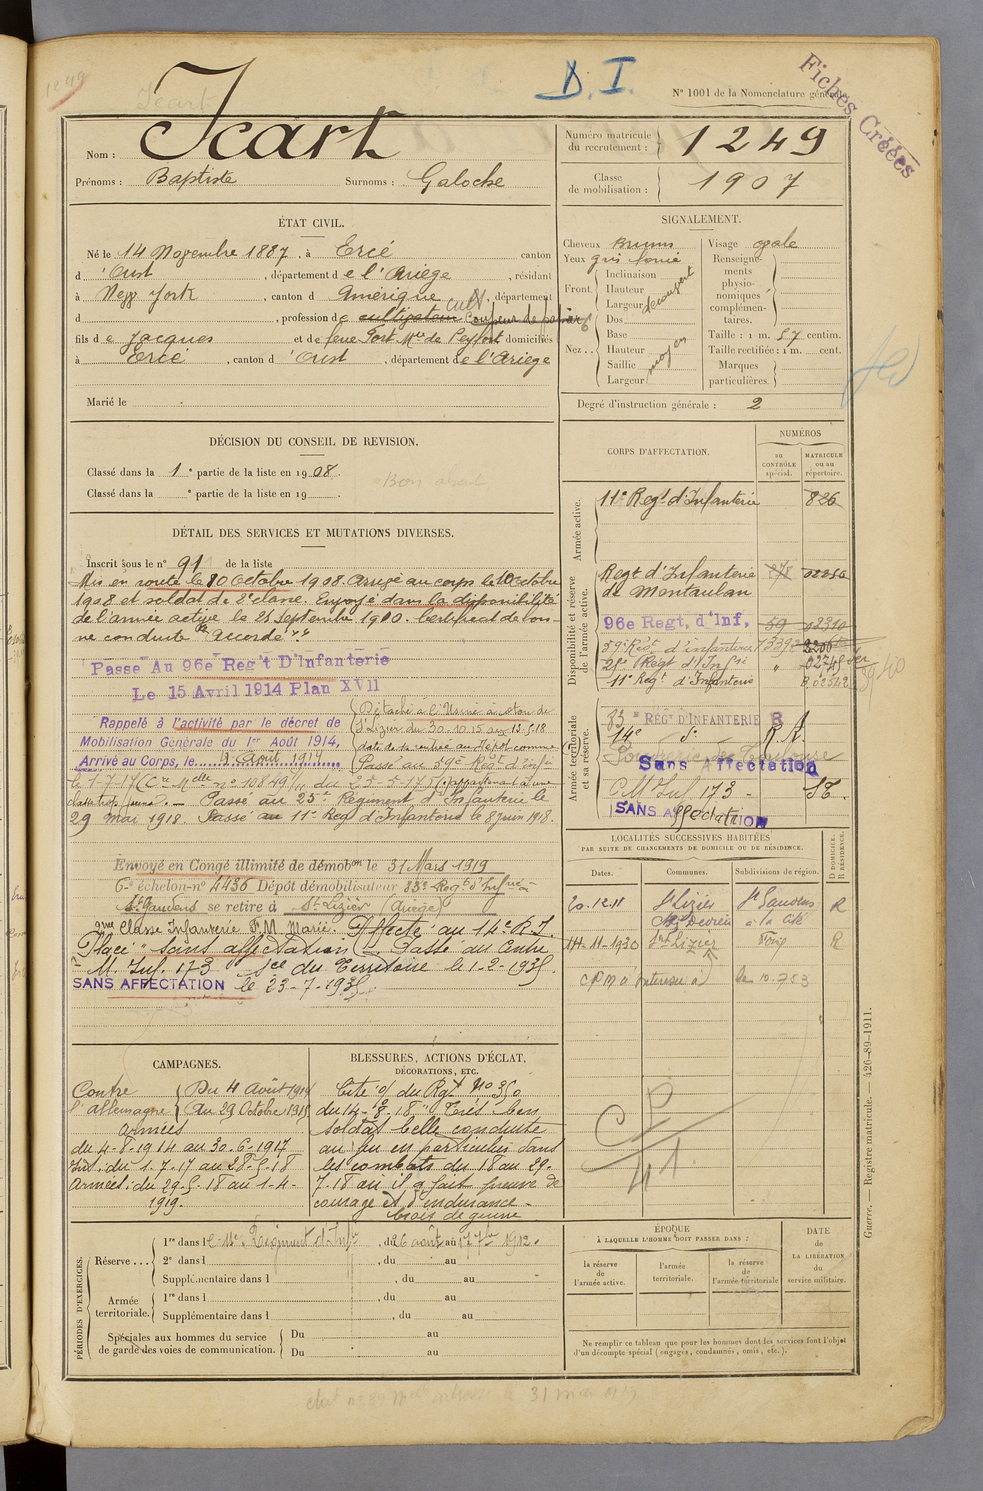 1249
D. I.
N° 1001 de la Nomenclature générale
Fiches Créées
Nom : Icart
Prénoms : Baptiste Surnoms : Galoche
Numéro matricule du recrutement : 1249
Classe de mobilisation : 1907
ÉTAT CIVIL.
Né le 14 Novembre 1887, à Ercé canton
d 'Oust, département de l'Ariège, résidant
à New York, canton d Amérique, département
d , profession de cultivateur cult Coupeur de papier
fils de Jacques et de feue Port Mie de Peyfort domiciliés
à Ercé, canton d 'Oust, département de l'Ariège
Marié le
SIGNALEMENT.
Cheveux Bruns
Yeux gris foncé
Front. Inclinaison
Hauteur
Largeur
Nez. . Dos
Base
Hauteur
Saillie
Largeur moyen
Visage ovale
Renseignements physionomiques complémentaires.
Taille : 1 m. 57 centim.
Taille rectifiée : 1 m. cent.
Marques particulières.
Degré d'instruction générale : 2
DÉCISION DU CONSEIL DE REVISION.
Classé dans la 1e partie de la liste en 1908.
Classé dans la e partie de la liste en 19
Bon absent
DÉTAIL DES SERVICES ET MUTATIONS DIVERSES.
Inscrit sous le n° 91 de la liste
Mis en route le 10 Octobre 1908. Arrivé au corps le 10 Octobre
1908 et soldat de 2e classe. Envoyé dans la disponibilité
de l'armée active le 25 Septembre 1910. Certificat de bon-
ne conduite "Accordé".
Passé Au 96e Reg't D'Infanterie
Le 15 Avril 1914 Plan XVII
Rappelé à l'activité par le décret de
Mobilisation Générale du 1er Août 1914,
Arrivé au Corps, le 4 Août 1914
Détaché à l'Usine à coton de
St Lizier du 30.10.15 au 13.5.18
date de sa rentrée au dépôt comme
Passé au 59e Régt d'infie
le 1-7-17 (Cre Melle n° 10849) du 25-5-17 (appartenant à une
classe trop jeune). — Passé au 25e Régiment d'Infanterie le
29 mai 1918. Passé au 11e Reg d'Infanterie le 8 juin 1918.
Envoyé en Congé illimité de démobon le 31 Mars 1919
6e échelon-n° 4436 Dépôt démobilisateur 83e Régt d'Infie à
St Gaudens se retire à St Lizier (Ariège)
2me Classe Infanterie F.M. Marié. Affecté au 14e R.I.
Placé "sans affectation" Passé au Centre
M. Inf. 173 Sce du Territoire le 1-2-193
SANS AFFECTATION le 23-7-193
CORPS D'AFFECTATION.
NUMÉROS
au CONTRÔLE spécial.
MATRICULE ou au répertoire.
Armée active.
11e Regt d'Infanterie 826
Disponibilité et réserve de l'armée active.
Regt d'Infanterie de Montauban
96e Regt, d'Inf, 59 02310
59e Régt d'infanterie
25e Regt d'Infie
11e Regt d'Infanterie
Armée territoriale et sa réserve.
83e REGt D'INFANTERIE
14e do
Sans Affectation
C M Inf 173 -
SANS AFFECTATION
LOCALITÉS SUCCESSIVES HABITÉES
PAR SUITE DE CHANGEMENTS DE DOMICILE OU DE RÉSIDENCE.
Dates. Communes. Subdivisions de région. D. DOMICILE. R. RÉSIDENCE.
20.12.11 St Lizier St Gaudens R
à la Cité
11-1930 St Lizier Foix R
CAMPAGNES.
Contre l'Allemagne Du 4 Août 1914
Au 29 Octobre 1915
Armées
du 4-8-1914 au 30-6-1917
Int: du 1.7.17 au 28-5-18
Armées: du 29.5.18 au 1-4-
1919.
BLESSURES, ACTIONS D'ÉCLAT,
DÉCORATIONS, ETC.
Cité o/ du Régt N° 350
du 14-8-18 "Très bon
soldat belle conduite
au feu en particulier dans
les combats du 18 au 29-
7-18 où il a fait preuve de
courage et d'endurance.
Croix de guerre
CP
41.
PÉRIODES D'EXERCICES.
Réserve . . . 1re dans le 11e Régiment d'Infie, du 26 août au 17 7bre 1912.
2e dans l , du au
Supplémentaire dans l , du au
Armée territoriale. 1re dans l , du au
Supplémentaire dans l , du au
Spéciales aux hommes du service de garde des voies de communication. Du au
Du au
ÉPOQUE
À LAQUELLE L'HOMME DOIT PASSER DANS :
la réserve de l'armée active.
l'armée territoriale.
la réserve de l'armée territoriale
DATE de LA LIBÉRATION du service militaire.
Ne remplir ce tableau que pour les hommes dont les services font l'objet
d'un décompte spécial (engagés, condamnés, omis, etc.).
Guerre. — Registre matricule. — 426-89-1911.